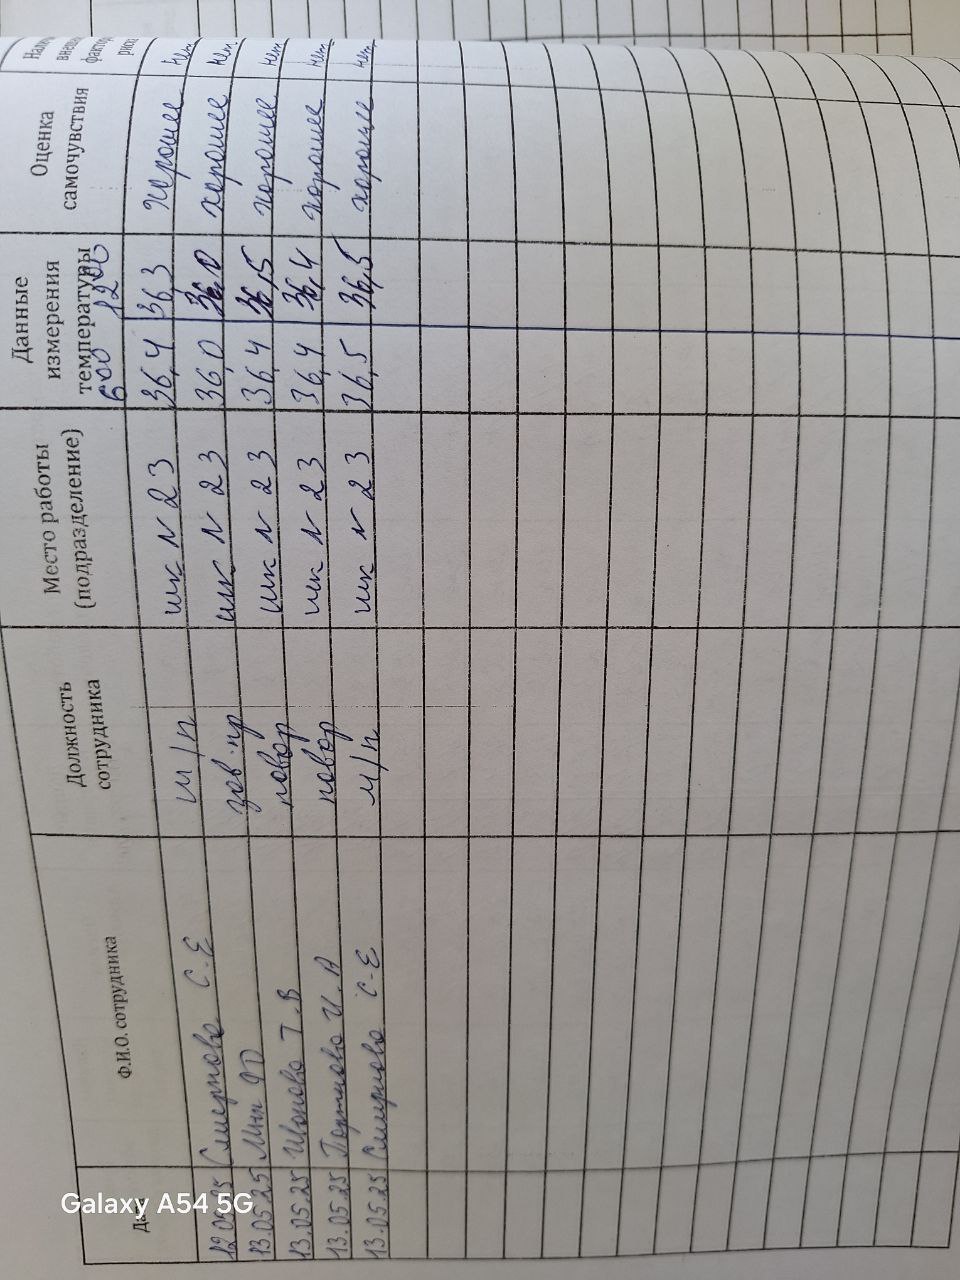 Дата Ф.И.О. сотрудника Должность сотрудника Место работы (подразделение) Данные измерения температуры 6 00 12 00 Оценка самочувствия
12.05.25 Смирнова С.Е м/п шк N 23 36,4 36,3 хорошее нет
13.05.25 Мнн зав.пр шк N 23 36,0 36,0 хорошее нет
13.05.25 Иванова Т.В повар шк N 23 36,4 36,5 хорошее нет
13.05.25 Портнова И.А повар шк N 23 36,4 36,4 хорошее нет
13.05.25 Смирнова С.Е м/п шк N 23 36,5 36,5 хорошее нет
Galaxy A54 5G